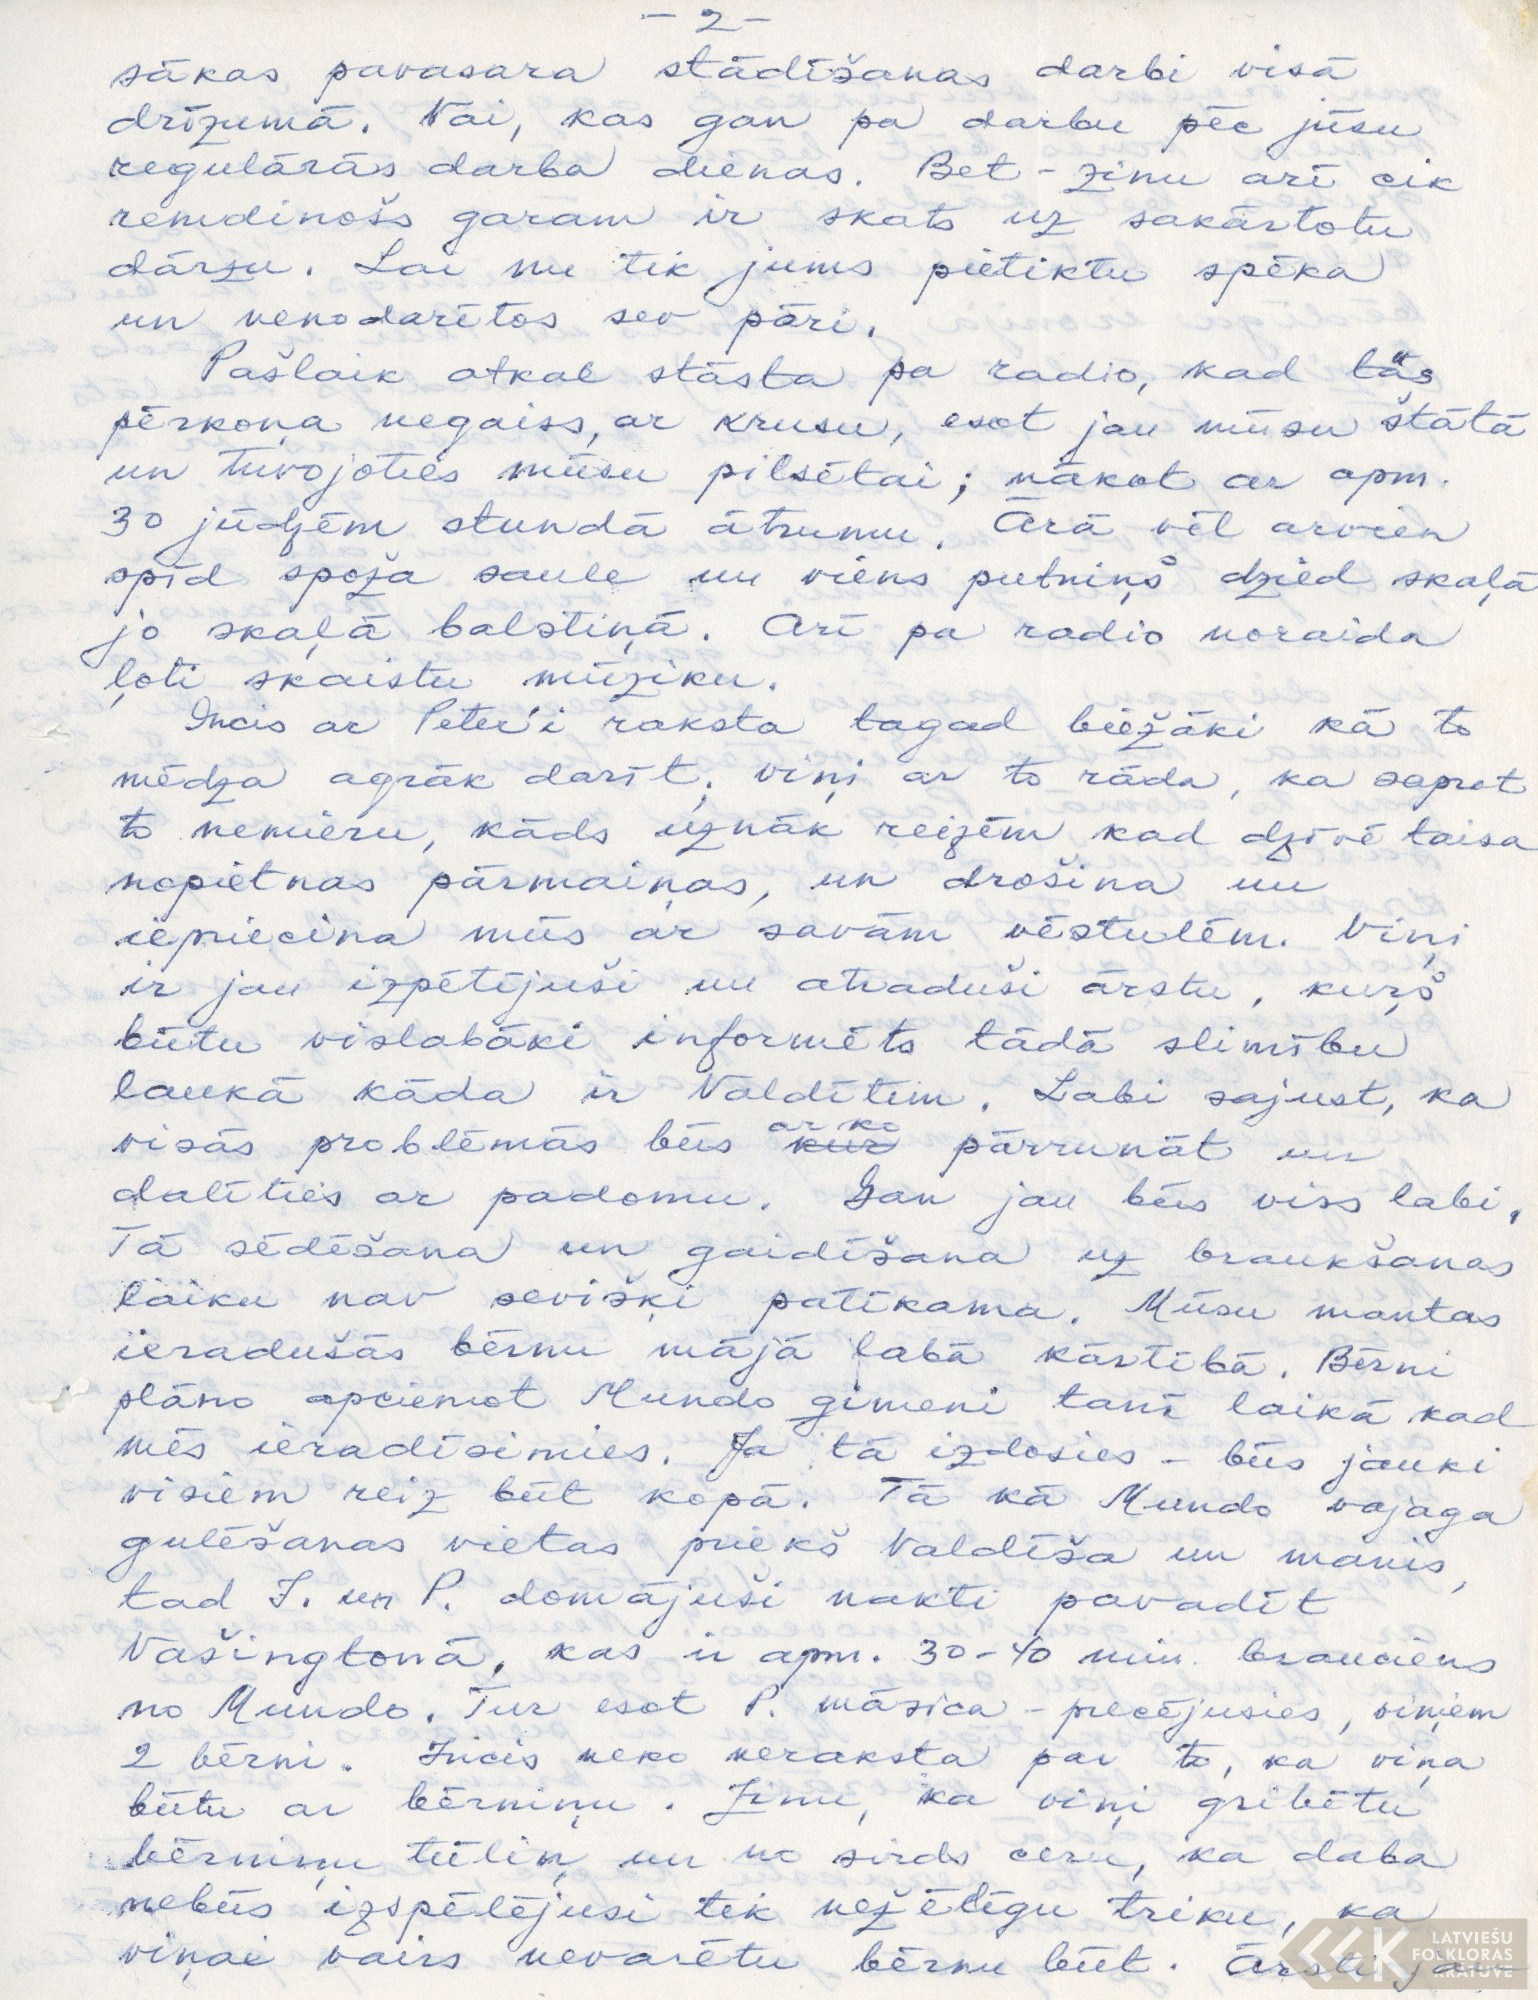 - 2 -
sākas pavasara stādīšanas darbi visā
drīzumā. Vai, kas gan pa darbu pēc jūsu
regulārās darba dienas. Bet - zinu arī cik
remdinošs garam ir skats uz sakārtotu
dārzu. Lai nu tik jums pietiktu spēka
un nenodarītos sev pāri.
Pašlaik atkal stāsta pa radio, kad tās
pērkoņa negaiss, ar krusu, esot jau mūsu štātā
un tuvojoties mūsu pilsētai; nākot ar apm.
30 jūdzēm stundā ātrumu. Ārā vēl arvien
spīd spoža saule un viens putniņš dzied skaļā
jo skaļā balstiņā. Arī pa radio noraida
ļoti skaistu mūziku.
Incis ar Peter'i raksta tagad biežāki kā to
mēdza agrāk darīt; viņi ar to rāda, ka saprot
to nemieru, kāds uznāk reizēm kad dzīvē taisa
nopietnas pārmaiņas, un drošina un
iepriecina mūs ar savām vēstulēm. Viņi
ir jau izpētījuši un atraduši ārstu, kurš
būtu vislabāki informēts tādā slimību
laukā kāda ir Valdītim. Labi sajust, ka
visās problēmās būs kur ar ko pārrunāt un
dalīties ar padomu. Gan jau būs viss labi.
Tā sēdēšana un gaidīšana uz braukšanas
laiku nav sevišķi patīkama. Mūsu mantas
ieradušās bērnu mājā labā kārtībā. Bērni
plāno apciemot Mundo ģimeni tanī laikā kad
mēs ieradīsimies. Ja tā izdosies - būs jauki
visiem reiz būt kopā. Tā kā Mundo vajaga
gulēšanas vietas priekš Valdīša un manis,
tad I. un P. domājuši nakti pavadīt
Vašingtonā, kas ir apm. 30-40 min. brauciens
no Mundo. Tur esot P. māsica - precējusies, viņiem
2 bērni. Incis neko neraksta par to, ka viņa
būtu ar bērniņu. Zinu, ka viņi gribētu
bērniņu tūliņ un no sirds ceru, ka daba
nebūs izspēlējusi tik nežēlīgu triku, ka
viņai vairs nevarētu bērnu būt. Ārsti jau
LATVIEŠU
FOLKLORAS
KRĀTUVE